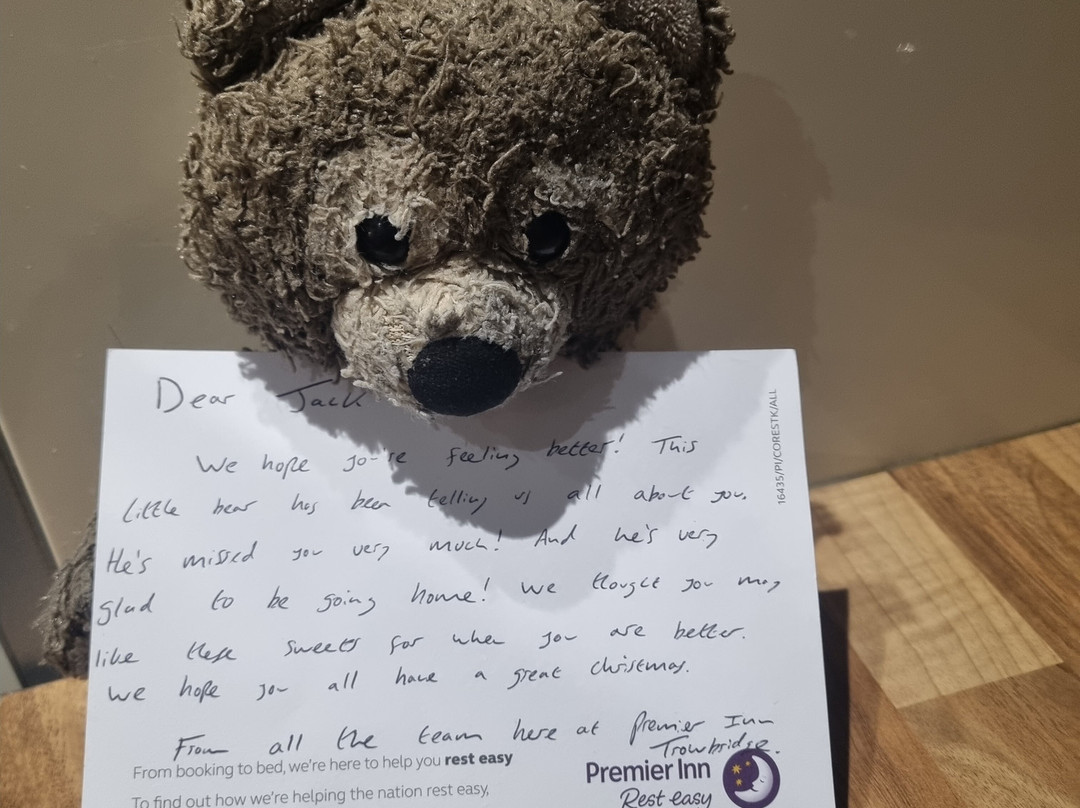 Dear Jack
We hope you're feeling better! This
little bear has been telling us all about you.
He's missed you very much! And he's very
glad to be going home! We thought you may
like these sweets for when you are better.
We hope you all have a great christmas.
From all the team here at Premier Inn
Trowbridge.
From booking to bed, we're here to help you rest easy
To find out how we're helping the nation rest easy,
Premier Inn
Rest easy
16435/PI/CORESTK/ALL